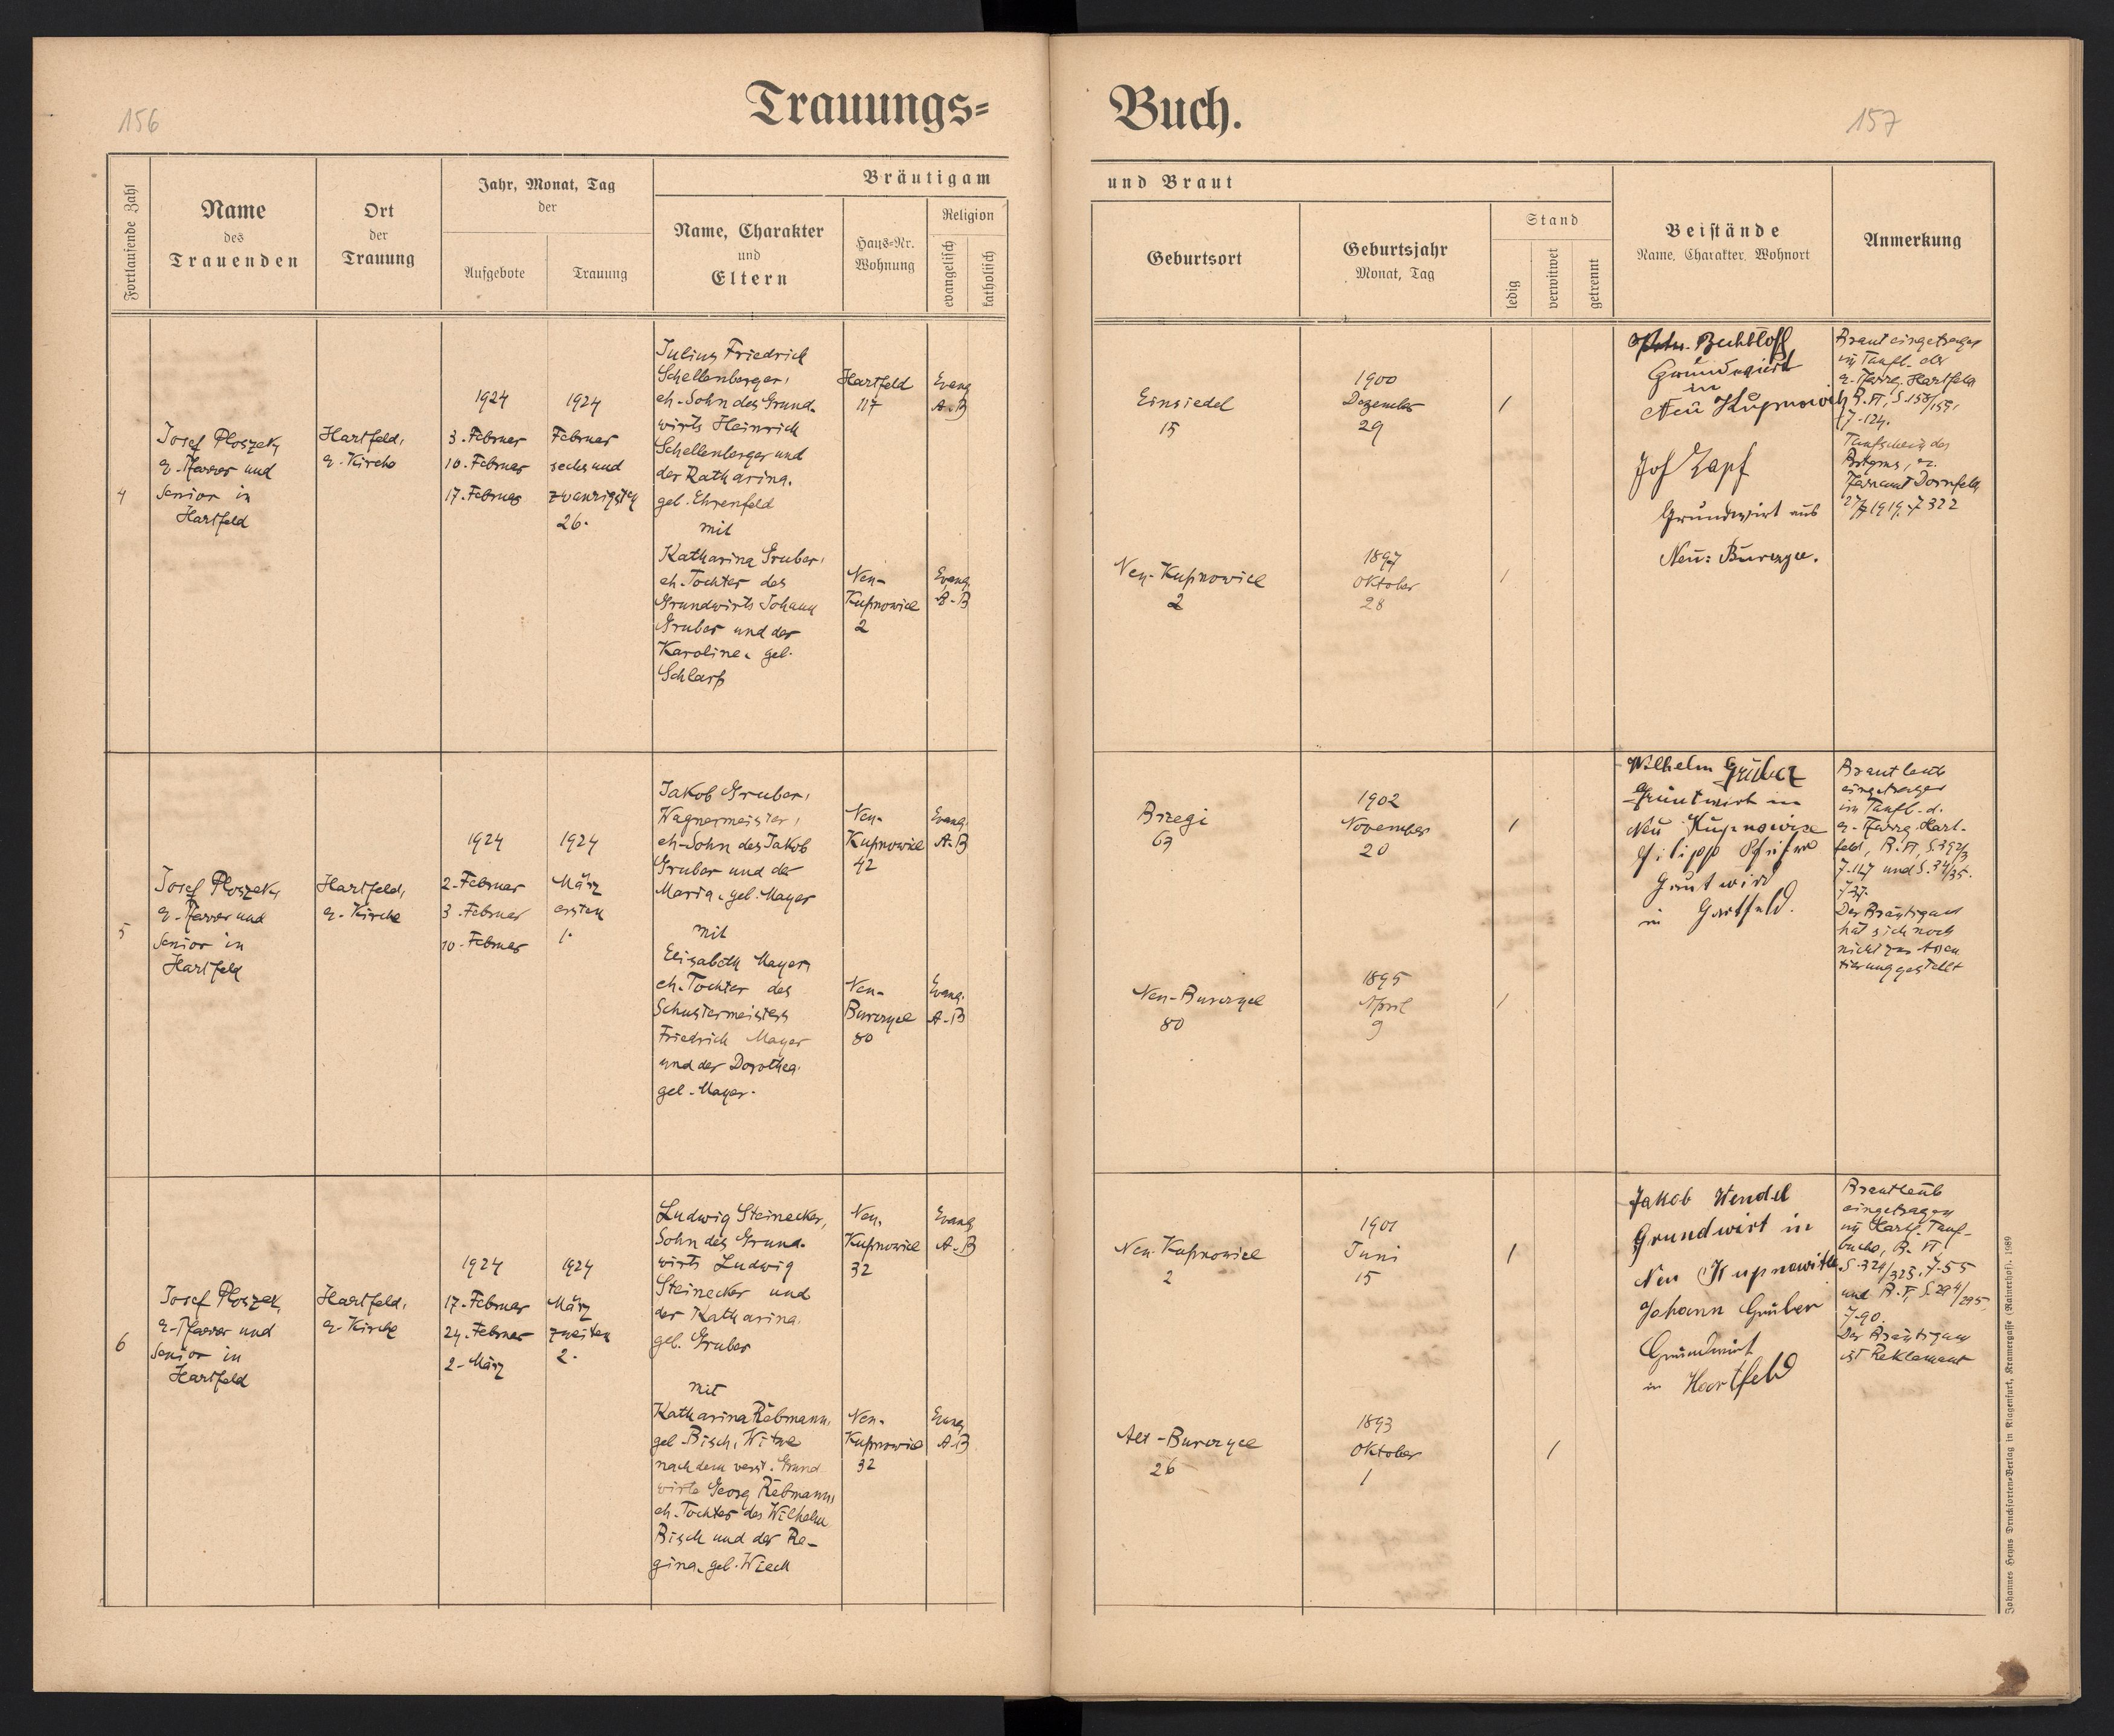 156
Trauungs=
Fortlaufende Zahl
Name
des
Trauenden
Ort
der
Trauung
Jahr, Monat, Tag
der
Aufgebote
Trauung
Bräutigam
Name, Charakter
und
Eltern
Haus=Nr.
Wohnung
Religion
evangelisch
katholisch
4
Josef Ploszek,
e. Pfarrer und
Senior in
Hartfeld
Hartfeld,
e. Kirche
1924
3. Februar
10. Februar
17. Februar
1924
Februar
sechsund
zwanzigsten
26.
Julius Friedrich
Schellenberger,
eh. Sohn des Grund-
wirts Heinrich
Schellenberger und
der Katharina,
geb. Ehrenfeld
mit
Katharina Gruber,
eh. Tochter des
Grundwirts Johann
Gruber und der
Karoline, geb.
Schlarp
Hartfeld
117
Neu-
Kupnowice
2
Evang.
A. B
Evang.
A. B
5
Josef Ploszek,
e. Pfarrer und
Senior in
Hartfeld
Hartfeld,
e. Kirche
1924
2. Februar
3. Februar
10. Februar
1924
März
ersten
1.
Jakob Gruber,
Wagnermeister,
eh. Sohn des Jakob
Gruber und der
Maria, geb. Mayer
mit
Elisabeth Mayer,
eh. Tochter des
Schustermeisters
Friedrich Mayer
und der Dorothea,
geb. Mayer.
Neu-
Kupnowice
42
Neu-
Burczyce
80
Evang.
A. B
Evang.
A. B
6
Josef Ploszek,
e. Pfarrer und
Senior in
Hartfeld
Hartfeld,
e. Kirche
1924
17. Februar
24. Februar
2. März
1924
März
zweiten
2.
Ludwig Steinecker,
Sohn des Grund-
wirts Ludwig
Steinecker und
der Katharina,
geb. Gruber
mit
Katharina Rebmann,
geb. Bisch, Witwe
nach dem verst. Grund
wirte Georg Rebmann,
eh. Tochter des Wilhelm
Bisch und der Re-
gina, geb. Wiech
Neu-
Kupnowice
32
Neu-
Kupnowice
32
Evang
A. B
Evang
A. B
157
Buch.
und Braut
Geburtsort
Geburtsjahr
Monat, Tag
Stand
ledig
verwitwet
getrennt
Beistände
Name, Charakter, Wohnort
Anmerkung
Einsiedel
15
1900
Dezember
29
/
Neu-Kupnowice
2
1897
Oktober
28
/
Bechtloff
Grundwirt
in
Neu Kupnowich
Joh Zapf
Grundwirt aus
Neu: Burczyce.
Braut eingetragen
im Taufb. der
e. Pfarrg. Hartfeld
B. VI, S. 158/159,
Z. 124.
Taufschein des
Brtgms, e.
Pfarramt Dornfeld
1919, Z 322
Brzegi
63
1902
November
20
/
Neu-Burczyce
80
1895
April
9
/
Wilhelm Gruber
Gruntwirt in
Neu Kupnowize
Filipp
Grutwird
in Hartfeld.
Brautleute
eingetragen
im Taufb. d.
e. Pfarrg. Hart-
feld, B. VI, S. 392/3
Z. 147 und S. 34/35.
Z 37.
Der Bräutigam
hat sich noch
nicht zur Assen
tierung gestellt
Neu-Kupnowice
2
1901
Juni
15
/
Alt-Burczyce
26
1893
Oktober
1
/
Jakob Wendel
Grundwirt in
Neu Kupnowitze
Johann Gruber
Grundwirt
in Hartfeld
Brautleute
eingetragen
im Hartf. Tauf-
buche, B. VI,
S. 324/325, Z. 55
und B. V, S. 294/295,
Z. 90.
Der Bräutigam
ist Reklamant
Johannes Heyns Drucksorten=Verlag in Klagenfurt, Kramergasse (Rainerhof). 1989